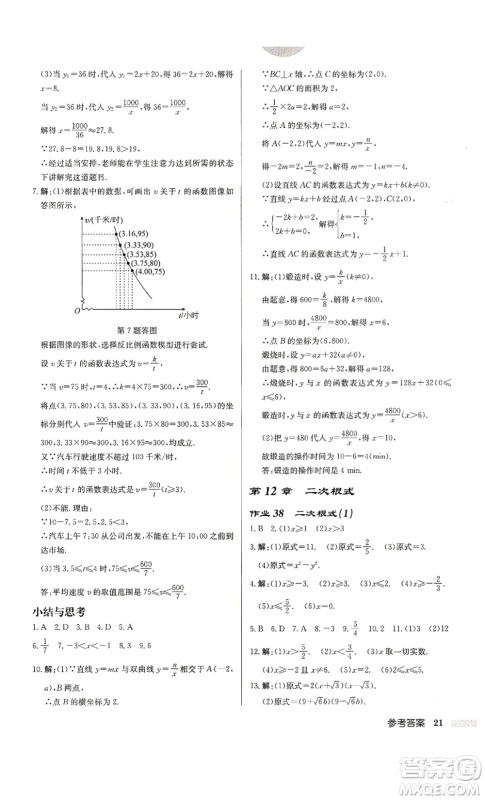 (3)当 y₁=36 时,代入 y₁=2x+20,得 36=2x+20,解得
x=8.
当 y₂=36 时,代入 y₂=1000/x,得 36=1000/x,
解得 x=1000/36≈27.8.
∵27.8-8=19.8>19,
∴经过适当安排,老师能在学生注意力达到所需的状态
下讲解完这道题目.
7.解:(1)根据表中的数据,可画出 v 关于 t 的函数图像如
答图所示,
v/(千米/时)
(3.16,95)
(3.33,90)
(3.53,85)
(3.75,80)
(4.00,75)
O
t/小时
第 7 题答图
根据图像的形状,选择反比例函数模型进行尝试.
设 v 关于 t 的函数表达式为 v=k/t,
∵当 v=75 时,t=4,∴k=4×75=300.∴v=300/t.
将(3.75,80),(3.53,85),(3.33,90),(3.16,95)的坐
标分别代入 v=300/t 中验证,得 v=300/t,
∵汽车行驶速度不超过 100 千米/时,∴t≥3.
∴v 关于 t 的函数表达式为 v=300/t(t≥3).
(2)不能.
理由:∵10-7.5=2.5,
∴当 t=2.5 时,v=300/2.5=120>100.
∴汽车上午 7:30 从公司出发,不能在上午 10:00 之前到
达市场.
(3)当 3.5≤t≤4 时,75≤v≤600/7.
答:平均速度 v 的取值范围是 75≤v≤600/7.
小结与思考
1.A 2.D 3.B 4.D 5.A
6.1/7 7.-3/2<x<0 8.3 9.6
10.解:(1)∵直线 y=mx 与双曲线 y=n/x 相交于 A(-2,
a),B 两点,
∴点 B 的横坐标为 2.
∵BC⊥x 轴,∴点 C 的坐标为(2,0).
(2)∵△AOC 的面积为 2,
∴1/2×2a=2.解得 a=2.
∴点 A 的坐标为(-2,2).
将点 A(-2,2)的坐标代入 y=mx,y=n/x,
得-2m=2,n/-2=2.解得 m=-1,n=-4.
设直线 AC 的函数表达式为 y=kx+b(k≠0).
∵直线 y=kx+b 经过点 A,C,
∴{-2k+b=2,2k+b=0. 解得{k=-1/2,b=1.
∴直线 AC 的函数表达式为 y=-1/2x+1.
11.解:(1)锻造时,设 y=k/x(k≠0),
由题意,得 600=k/8,解得 k=4800.
当 y=800 时,4800/x=800,解得 x=6.
∴点 B 的坐标为(6,800).
煅烧时,设 y=ax+b(a≠0),
由题意,得{b=32,6a+b=800. 解得{a=128,b=32.
∴煅烧时,y 关于 x 的函数表达式为 y=128x+32(0≤
x≤6),
锻造时,y 关于 x 的函数表达式为 y=4800/x(x>6).
(2)当 y=480 时,y=4800/x=480,x=10.∵10-6=4(min),
∴锻造的操作时间有 4 min.
答:锻造的操作时间为 4 min.
第 12 章 二次根式
作业 38 二次根式(1)
1.B 2.(1)x≥-1 (2)x>3
3.解:(1)原式=11.(2)原式=2/5.
(3)原式=x²-y².
4.解:(1)x≥-3. (2)x≥2/3.
(3)x≤5/2. (4)x>1.
5.D 6.D 7.A 8.B 9.5/4 10.4 11.2
12.解:(1)x>-3. (2)x<3/4.(3)x 取一切实数.
(4)x≥0 且 x≠1.
13.解:(1)原式=(x+√5)(x-√5).
(2)原式=(9+√6b)(9-√6b).
参考答案 21